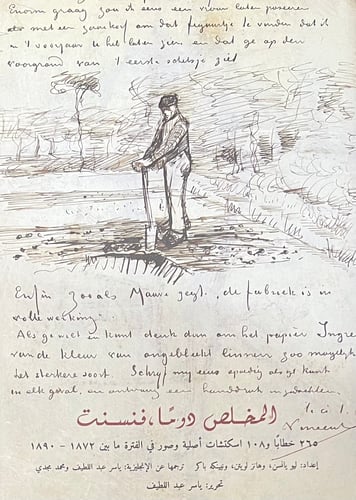 Enorm graag zou ik eens een vrouw laten poseeren
met een zaaikorf om dat figuurtje te vinden dat ik
u 't voorjaar heb laten zien en dat ge op den
voorgrond van 't eerste schetsje ziet
Enfin zooals Mauve zegt, de fabriek is in
volle werking.
Als ge wilt en kunt denk dan om het papier Ingres
van de kleur van ongebleekt linnen zoo mogelijk
het sterkere soort. Schrijf my eens spoedig als ge kunt
in elk geval, en ontvang een handdruk in gedachten
t. à t.
Vincent
المخلص دومًا، فنسنت
٢٦٥ خطابًا و١٠٨ اسكتشات أصلية وصور في الفترة ما بين ١٨٧٢ - ١٨٩٠
إعداد: ليو يانسن، وهانز لويتن، ونينكه باكر ترجمها عن الإنجليزية: ياسر عبد اللطيف ومحمد مجدي
تحرير: ياسر عبد اللطيف